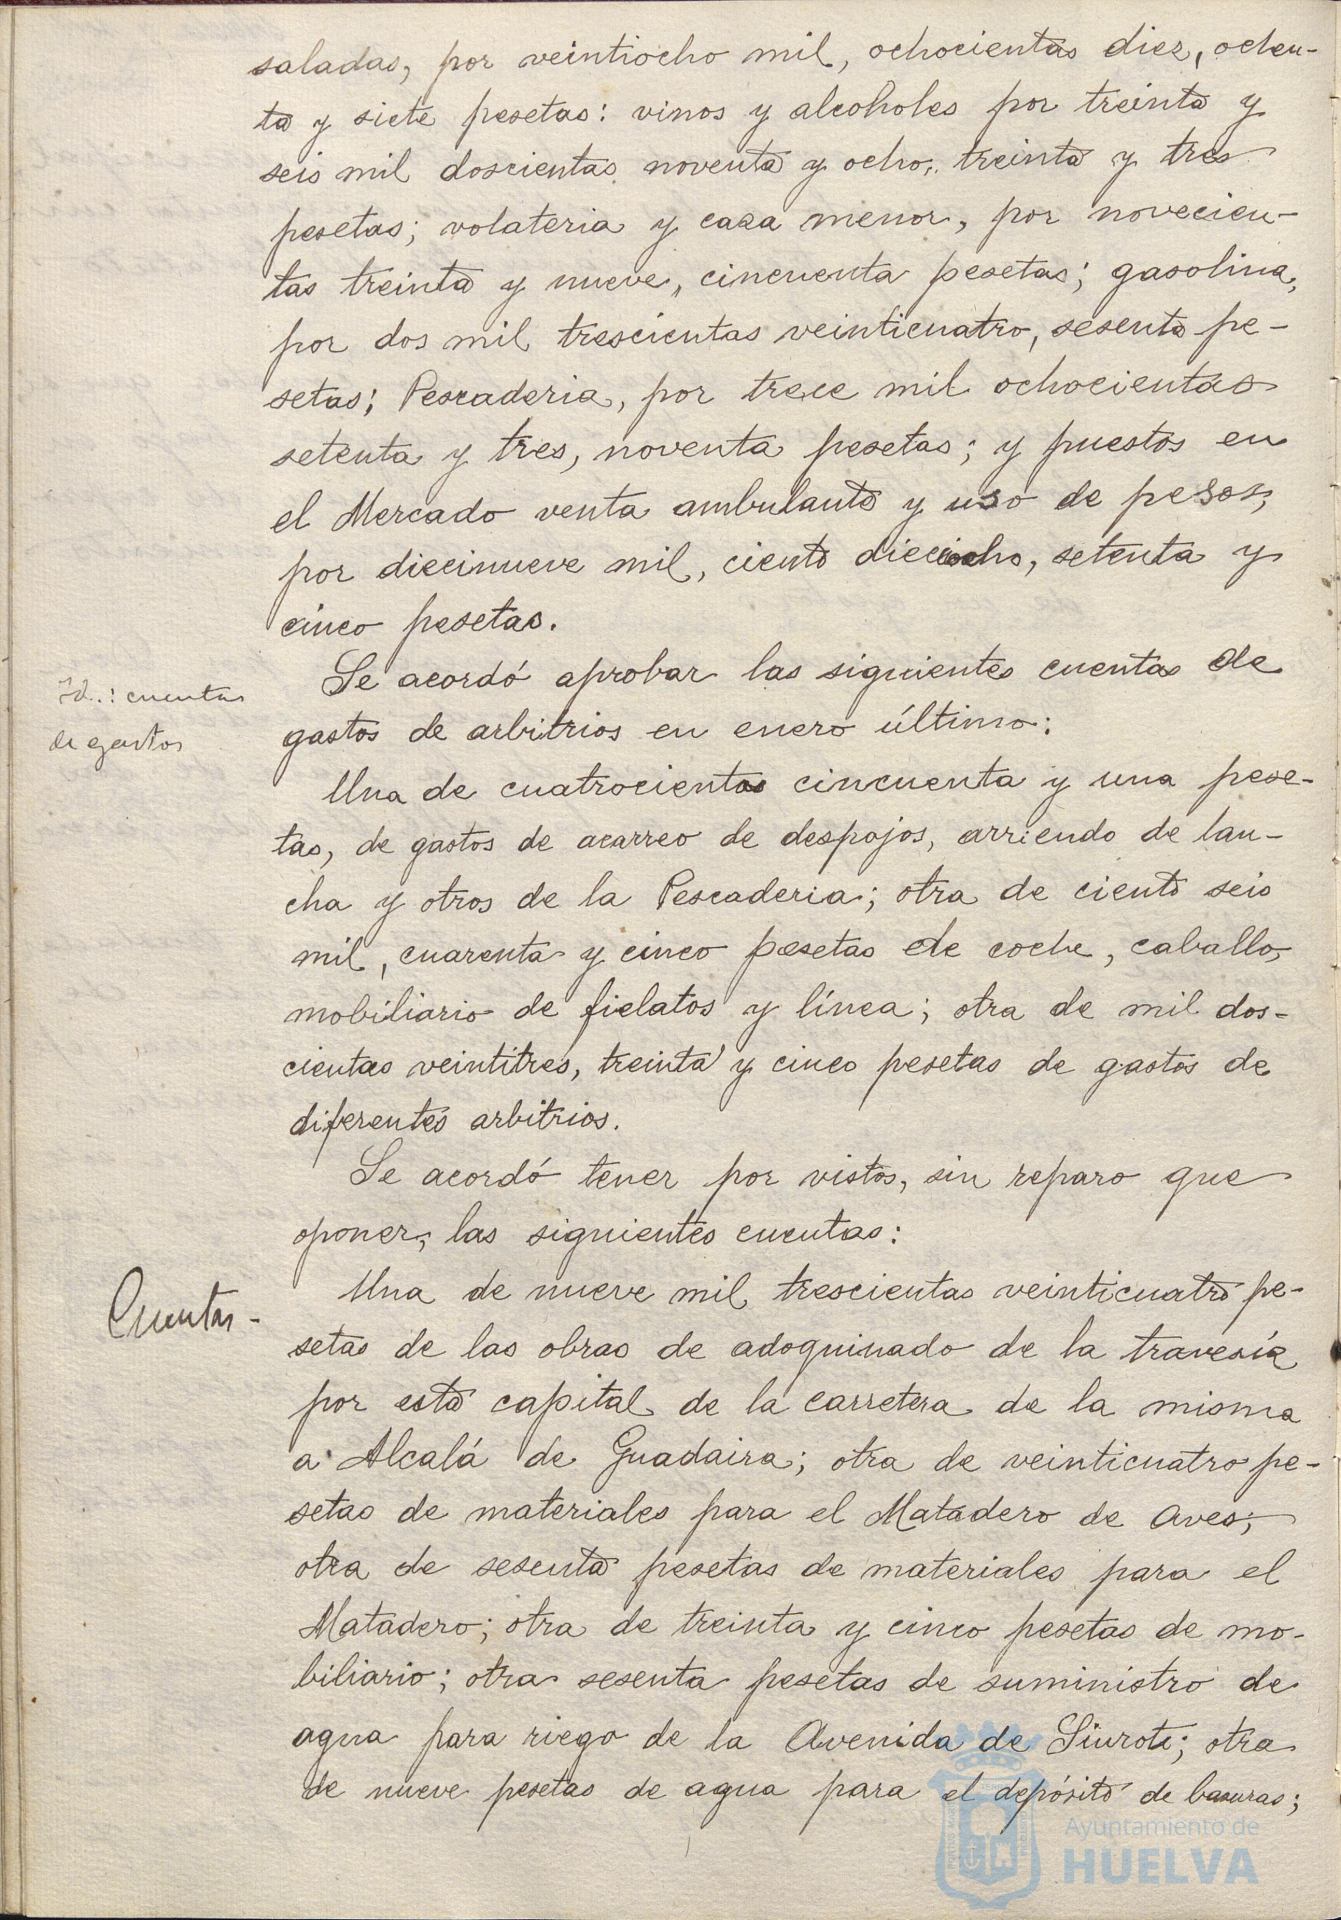 saladas, por veintiocho mil, ochocientas diez, ochen-
ta y siete pesetas: vinos y alcoholes por treinta y
seis mil doscientas noventa y ocho, treinta y tres
pesetas; volateria y caza menor, por novecien-
tas treinta y nueve, cincuenta pesetas; gasolina,
por dos mil trescientas veinticuatro, sesenta pe-
setas; Pescaderia, por trece mil ochocientas
setenta y tres, noventa pesetas; y puestos en
el Mercado venta ambulante y uso de pesos,
por diecinueve mil, ciento dieciocho, setenta y
cinco pesetas.
Se acordó aprobar las siguientes cuentas de
Id.: cuentas
de gastos
gastos de arbitrios en enero último:
Una de cuatrocientas cincuenta y una pese-
tas, de gastos de acarreo de despojos, arriendo de lan-
cha y otros de la Pescaderia; otra de ciento seis
mil, cuarenta y cinco pesetas de coche, caballo,
mobiliario de fielatos y línea; otra de mil dos-
cientas veintitres, treinta y cinco pesetas de gastos de
diferentes arbitrios.
Se acordó tener por vistos, sin reparo que
oponer, las siguientes cuentas:
Cuentas-
Una de nueve mil trescientas veinticuatro pe-
setas de las obras de adoquinado de la travesía
por esta capital de la carretera de la misma
a Alcalá de Guadaira; otra de veinticuatro pe-
setas de materiales para el Matadero de Aves;
otra de sesenta pesetas de materiales para el
Matadero; otra de treinta y cinco pesetas de mo-
biliario; otra sesenta pesetas de suministro de
agua para riego de la Avenida de Siurot; otra
de nueve pesetas de agua para el depósito de basuras;
Ayuntamiento de
HUELVA